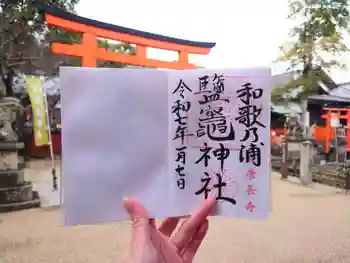 和歌乃浦
鹽竈神社
令和七年一月七日